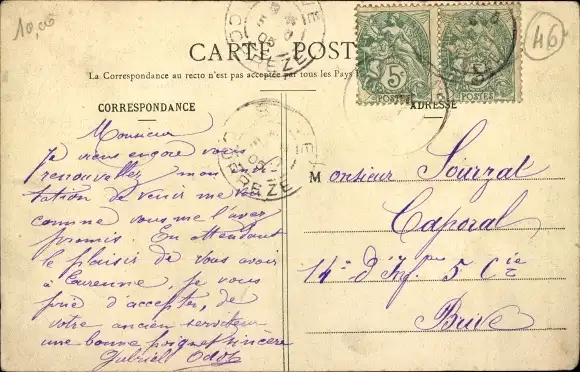 10,00
CARTE POST
La Correspondance au recto n'est pas acceptée par tous les Pays
CORRESPONDANCE
ADRESSE
46
5c
POSTES
POSTES
CORREZE
Monsieur
Je viens encore vous
renouveller mon invi
tation de venir me voir
comme vous me l'avez
promis. En attendant
le plaisir de vous avoir
à Turenne, je vous
prie d'accepter, de
votre ancien serviteur
une bonne poignet sincère
Gabriell
Monsieur Sourzat
Caporal
14e d'Infrie 5 Cie
Brive